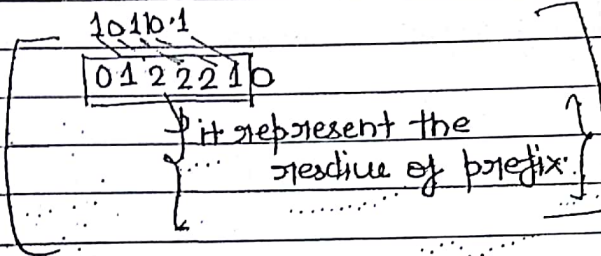 101101
01222210
it represent the
resdiue of prefix.